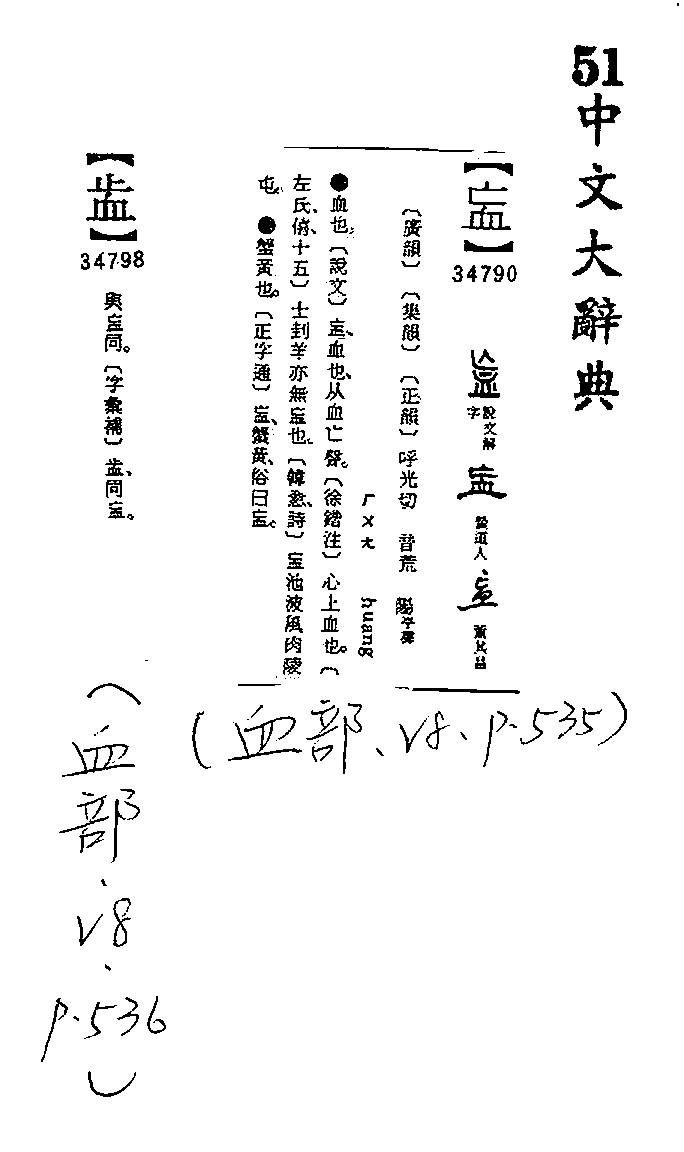 51中文大辭典
【衁】
34790
說文解字
營道人
董其昌
〔廣韻〕〔集韻〕〔正韻〕呼光切 音荒 陽平聲
ㄏㄨㄤ huang
●血也。〔說文〕衁、血也、从血亡聲。〔徐鍇注〕心上血也。〔
左氏、僖、十五〕士刲羊亦無衁也。〔韓愈、詩〕衁池波風肉陵
屯。●蟹黃也。〔正字通〕衁、蟹黃、俗曰衁。
(血部、V8、P.535)
34798
與衁同。〔字彙補〕、同衁。
(血部.V8.P.536)